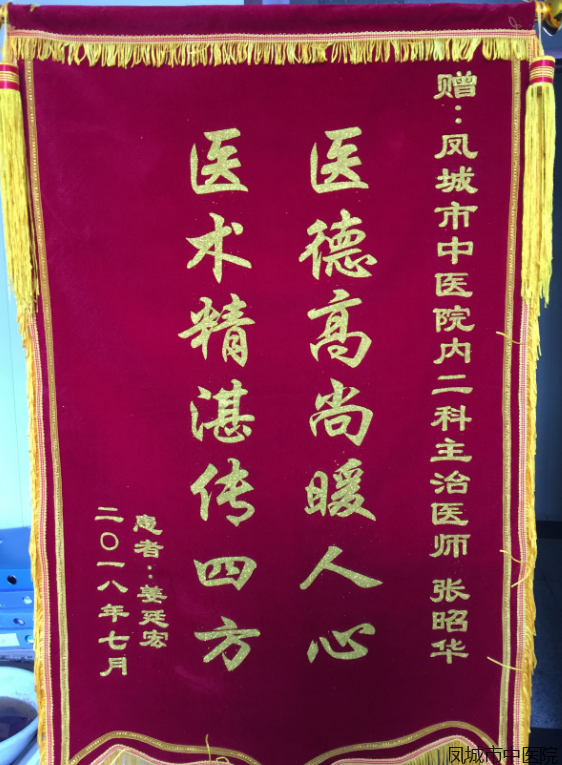 赠：凤城市中医院内二科主治医师 张昭华
医德高尚暖人心
医术精湛传四方
患者：姜廷宏
二〇一八年七月
凤城市中医院